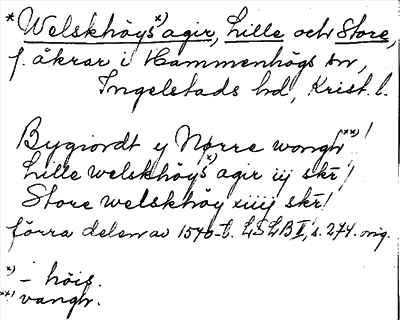 * Welskhöys*) agir, Lille och Store,
f. åkrar i Hammenhögs sn,
Ingelstads hd, Krist. l.
Bygiordt y Nørre wongh**) /
Lille welskhöys*) agir iij skr /
Store welskhöy iiij skr /
förra delen av 1540-t. LSLB II, s. 274. orig.
*) - höis.
**) vangh.